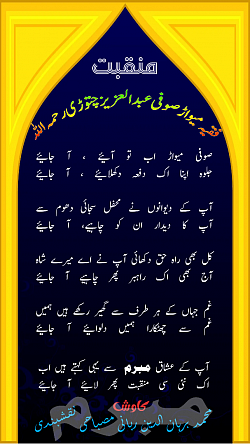 منقبت
فقیہ میواڑ صوفی عبدالعزیز چتوڑی رحمہ اللہ
صوفی میواڑ اب تو آیئے ، آ جایئے
جلوہ اپنا اک دفعہ دکھلایئے ، آ جایئے
آپ کے دیوانوں نے محفل سجائی دھوم سے
آپ کا دیدار ان کو چاہیے، آ جایئے
کل بھی راہ حق دکھائی آپ نے اے میرے شاہ
آج بھی اک راہبر پھر چاہیے آ جایئے
غم جہاں کے ہر طرف سے گھیر رکھے ہیں ہمیں
غم سے چھٹکارا ہمیں دلوایئے آ جایئے
آپ کے عشاق مبرم سے یہی کہتے ہیں اب
اک نئی سی منقبت پھر لایئے آ جایئے
کاوش
محمد برہان الدین ربانی مصباحی نقشبندی